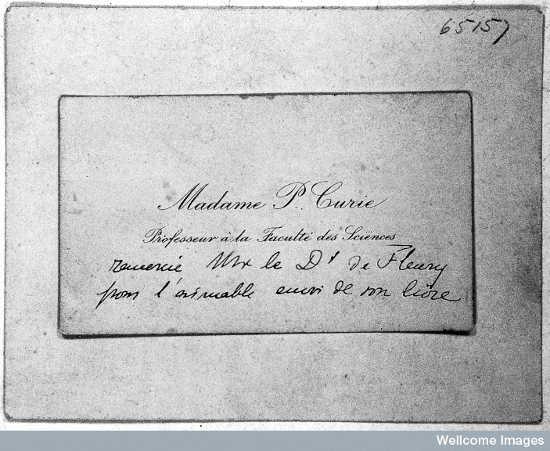 65157
Madame P. Curie
Professeur à la Faculté des Sciences
remercie Mr le Dr de Fleury
pour l'aimable envoi de son livre
Wellcome Images